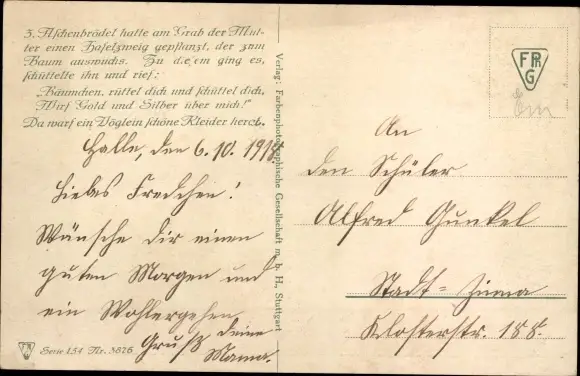 3. Aschenbrödel hatte am Grab der Mut-
ter einen Haselzweig gepflanzt, der zum
Baum auswuchs. Zu diesem ging es,
schüttelte ihn und rief:
„Bäumchen, rüttel dich und schüttel dich,
Wirf Gold und Silber über mich!"
Da warf ein Vöglein schöne Kleider herab.
Halle, den 6.10. 1918.
Liebes Fredchen!
Wünsche dir einen
guten Morgen und
ein Wohlergehen
Gruß deine
Mama.
Serie 154 Nr. 3876
Verlag: Farbenphotographische Gesellschaft m. b. H., Stuttgart
FPhG
An
den Schüler
Alfred Gunkel
Stadt-
Klosterstr. 188.